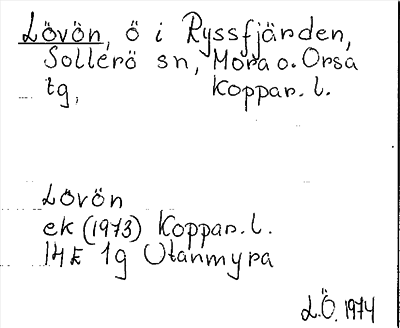 Lövön, ö i Ryssfjärden,
Sollerö sn, Mora o. Orsa
tg, Koppar. l.
Lövön
ek (1973) Koppar. l.
14E 1g Utanmyra
L.Ö. 1974